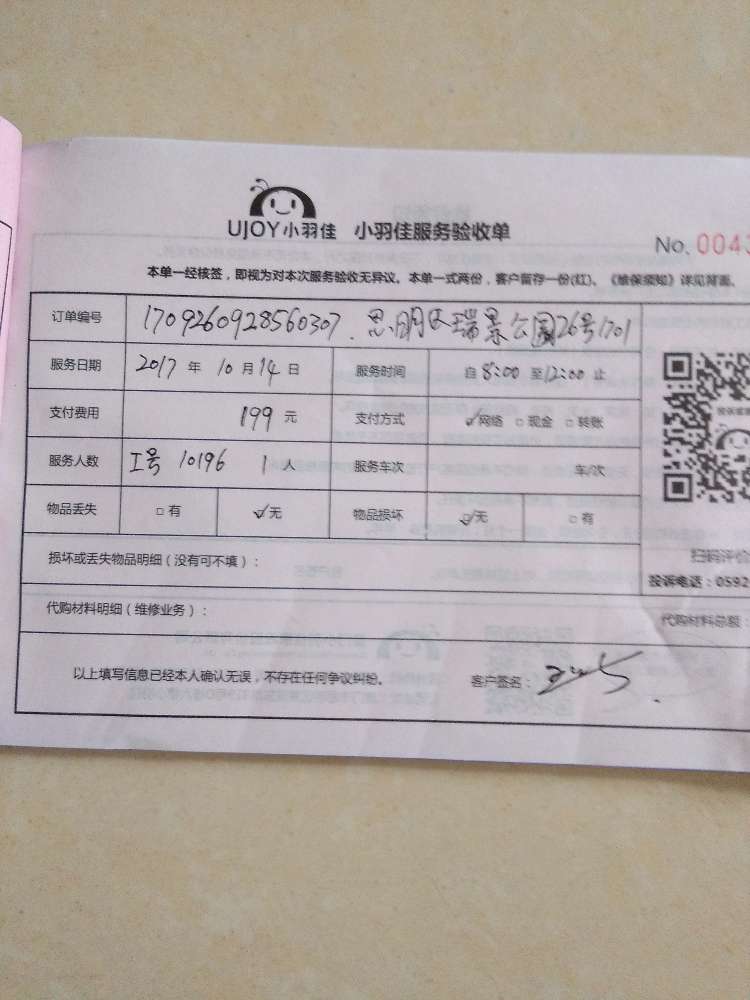 UJOY小羽佳 小羽佳服务验收单
No. 0043
本单一经核签，即视为对本次服务验收无异议。本单一式两份，客户留存一份(红)、《维保须知》详见背面。
订单编号 1709260928560307. 思明区瑞景公园26号1701
服务日期 2017 年 10 月 14 日 服务时间 自 8:00 至 12:00 止
支付费用 199 元 支付方式 ☑网络 □现金 □转账
服务人数 工号 10196 1 人 服务车次 车/次
物品丢失 □有 ☑无 物品损坏 ☑无 □有
扫码评价
损坏或丢失物品明细（没有可不填）：
投诉电话：0592
代购材料明细（维修业务）： 代购材料总额：
以上填写信息已经本人确认无误，不存在任何争议纠纷。 客户签名：